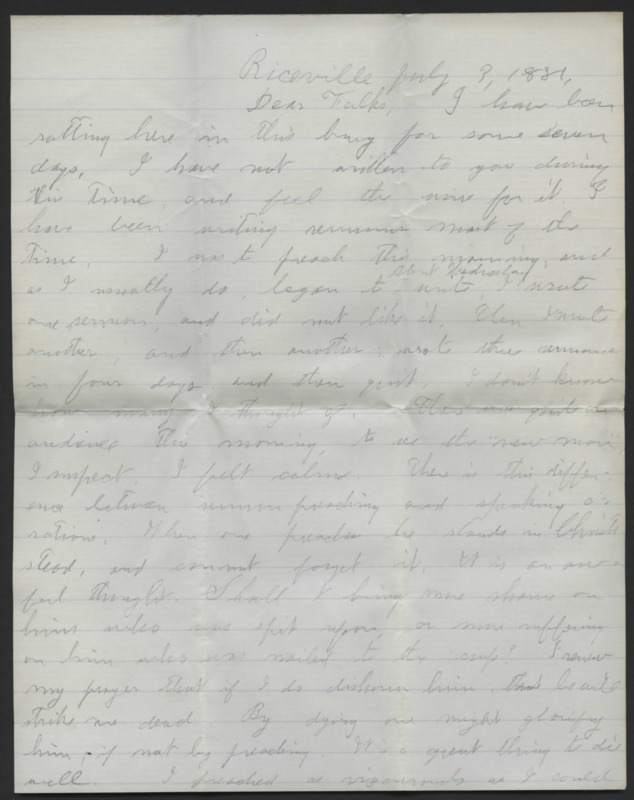 Riceville July 3, 1881,
Dear Folks, I have been
rotting here in this burg for some seven
days, I have not written to you during
this Time, and feel the worse for it. I
have been writing sermons most of the
Time. I was to preach this morning, and
as I usually do, began to write about Wednesday, I wrote
one sermon, and did not like it, then I wrote
another, and then another; wrote three sermons
in four days, and then quit, I don't know
how many I thought of. There was quite an
audience this morning, to see the "new man",
I suspect, I felt calm. There is this differ-
ence between sermon preaching and speaking o-
rations. When one preaches he stands in Christs
stead, and cannot forget it. It is an aw-
ful thought. Shall I bring more shame on
him who was spit upon, or more suffering
on him who was nailed to the? I renew
my prayer that if I do dishonor him, he will
strike me dead. By dying one might glorify
him, if not by preaching. It is a great thing to die
well. I preached as vigorously as I could